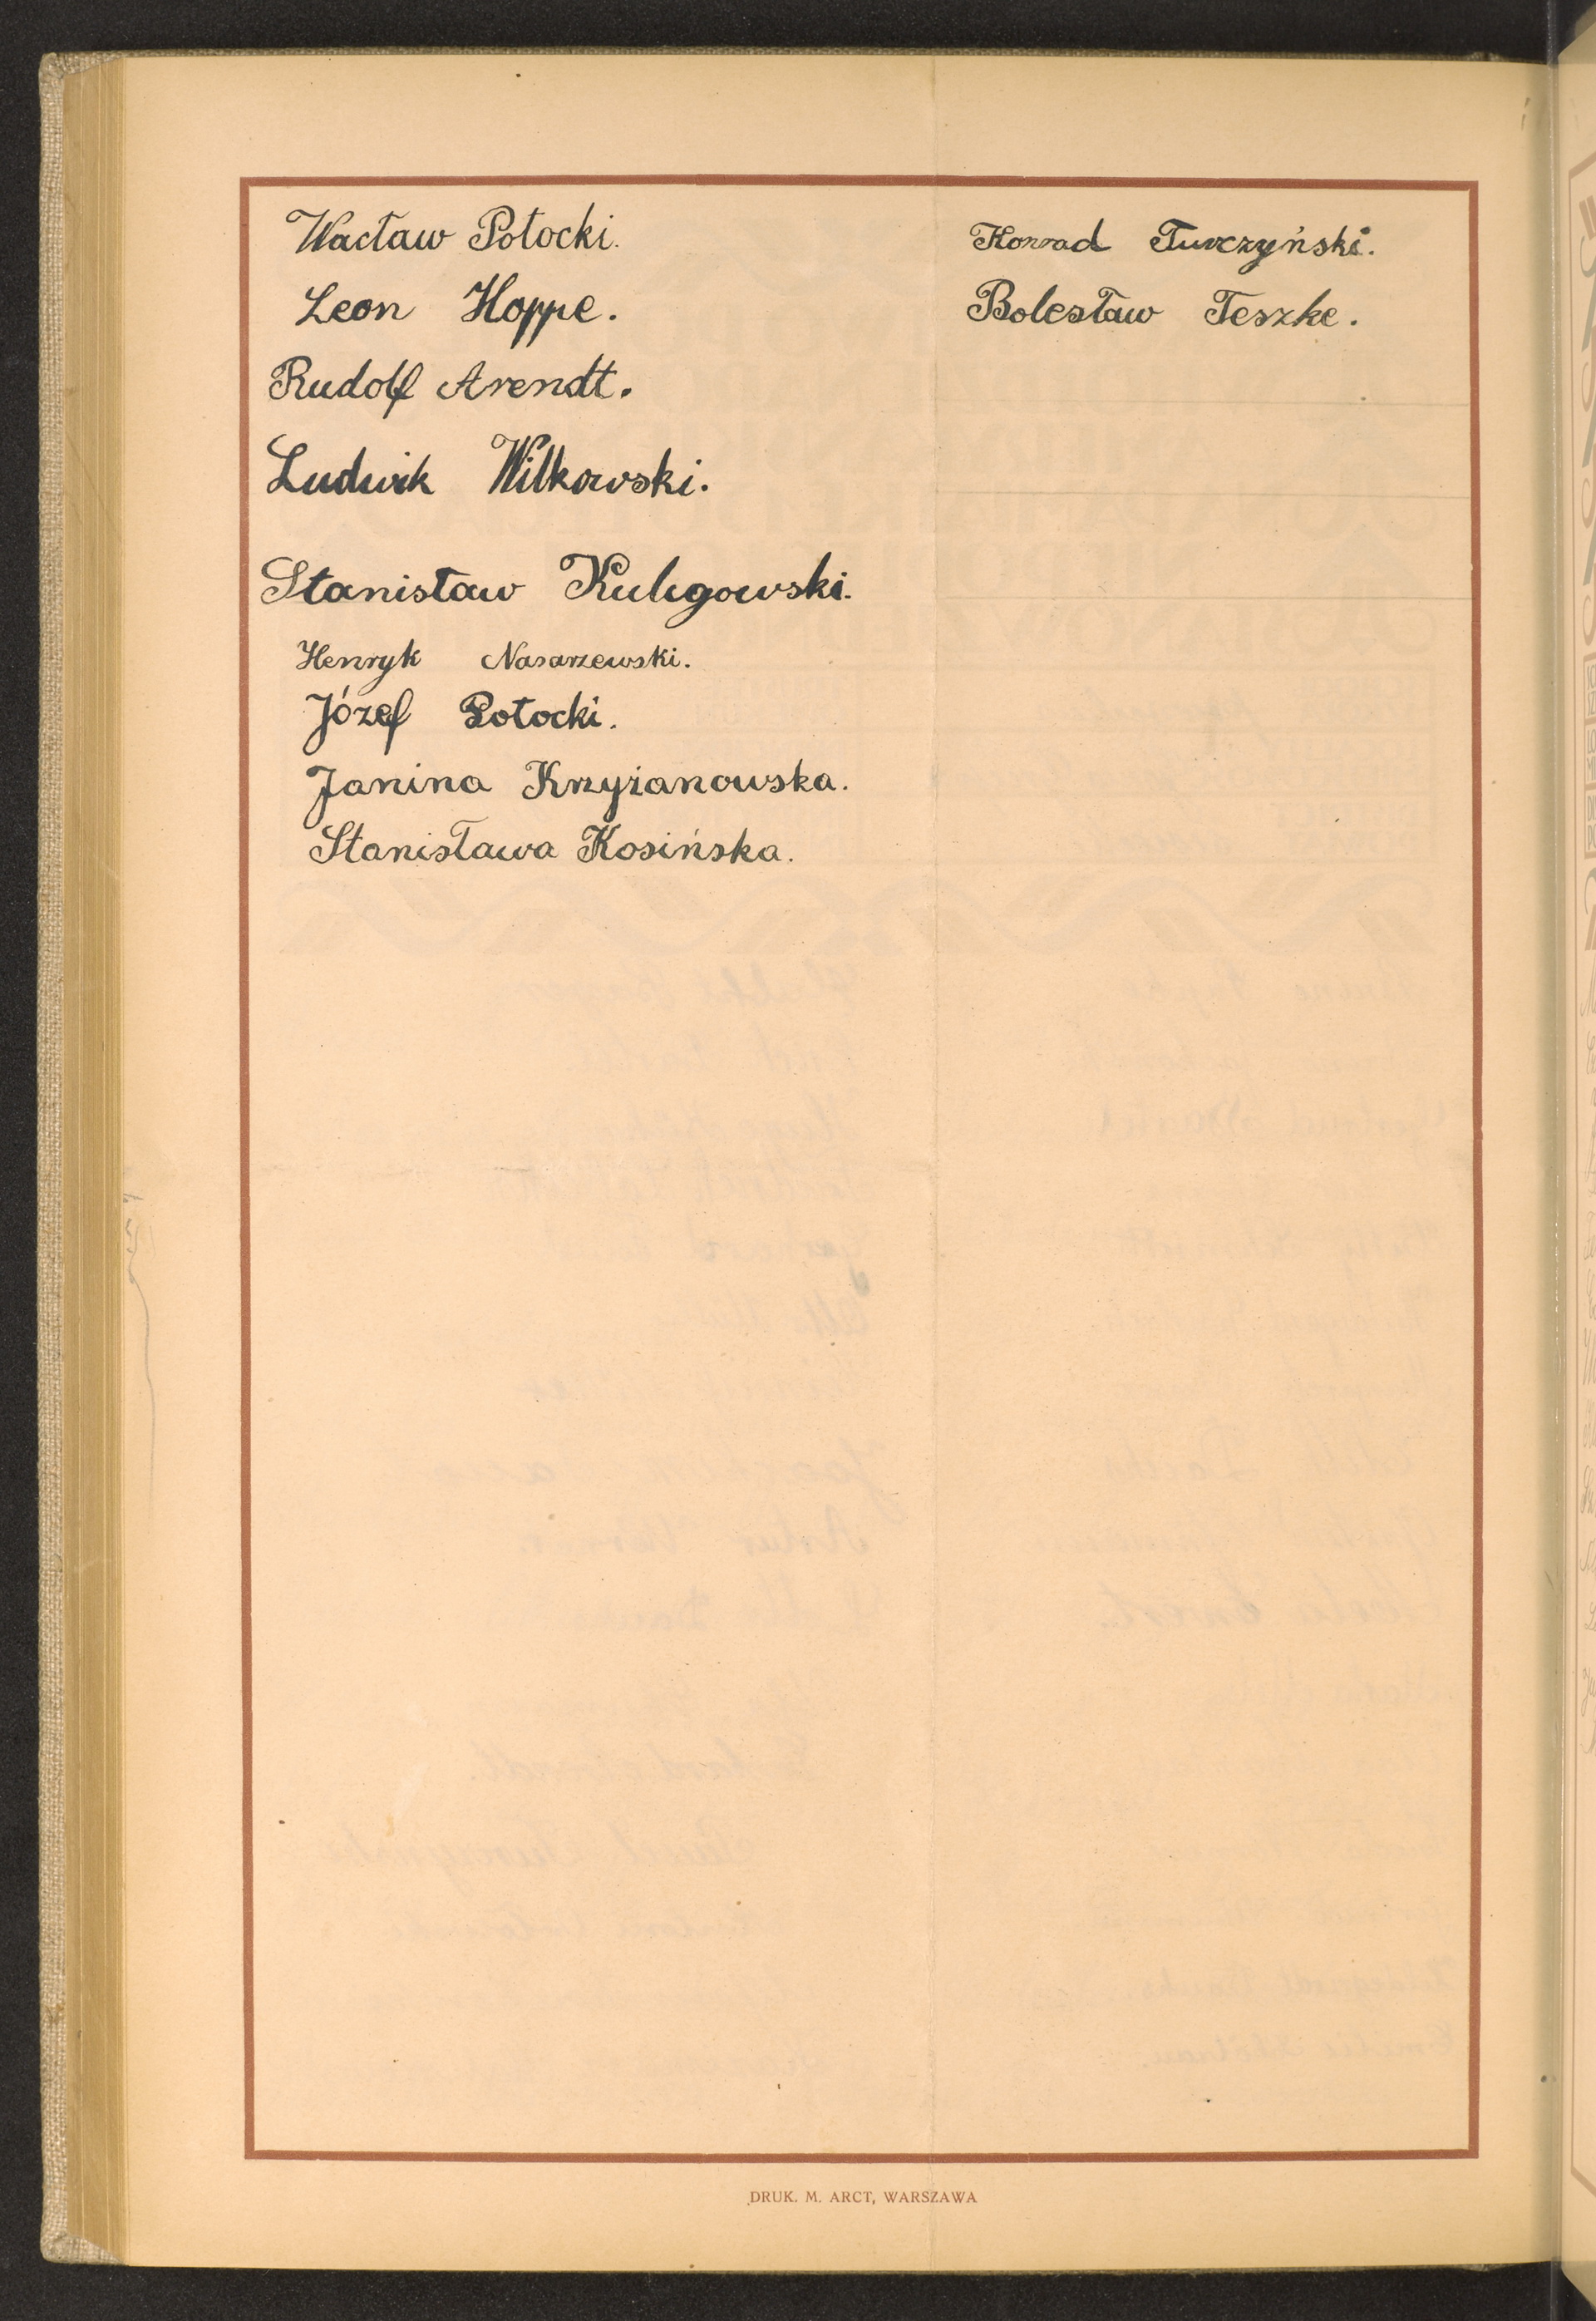 Wacław Potocki.
Leon Hoppe.
Rudolf Arendt.
Ludwik Wilkowski.
Stanisław Kuligowski.
Henryk Nasarzewski.
Józef Potocki.
Janina Krzyżanowska.
Stanisława Kosińska.
Konrad Turczyński.
Bolesław Teszke.
DRUK. M. ARCT, WARSZAWA